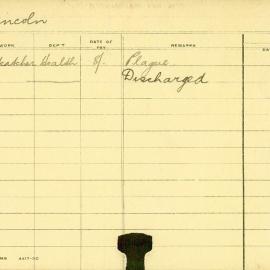 incoln
WORK DEP'T RATE OF PAY REMARKS DA
catcher Health 8/- Plague
Discharged
4417-30